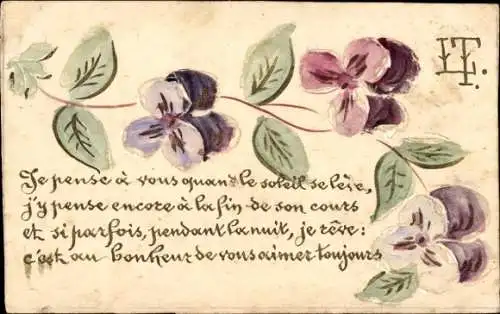 LT.
Je pense à vous quand le soleil se lève,
j'y pense encore à la fin de son cours
et si parfois, pendant la nuit, je rêve:
c'est au bonheur de vous aimer toujours